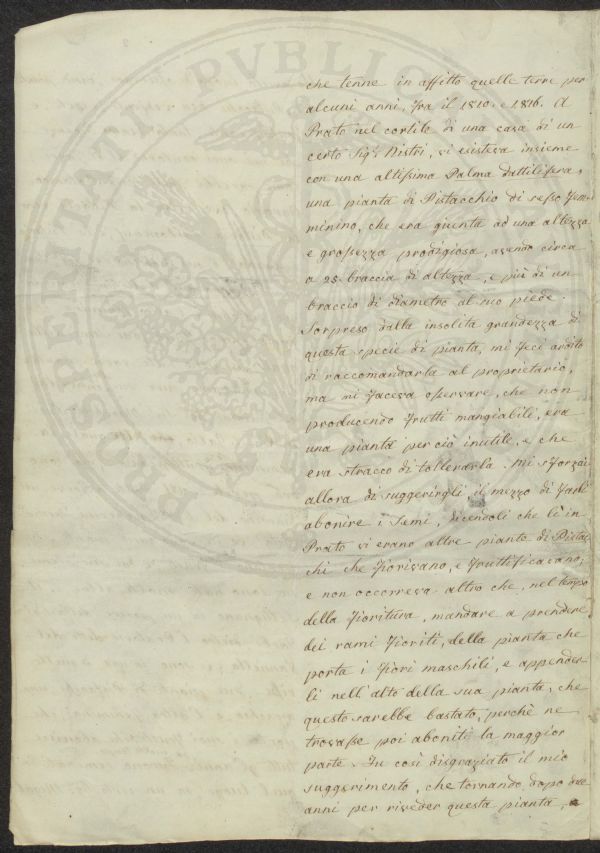 PROSPERITATI PVBLIC
che tenne in affitto quelle terre per
alcuni anni, fra il 1810. e 1816. A
Prato nel cortile di una casa di un
certo Sigr. Nistri, vi esisteva insieme
con una altissima Palma dattilifera,
una pianta di Pistacchio di sesso fem-
minino, che era giunta ad una altezza
e grossezza prodigiosa, avendo circa
a 25. braccia di altezza, e più di un
braccio di diametro al suo piede.
Sorpreso dalla insolita grandezza di
questa specie di pianta, mi feci ardito
di raccomandarla al proprietario,
ma mi faceva osservare, che non
producendo frutti mangiabili, era
una pianta perciò inutile, e che
era stracco di tollerarla. Mi sforzai
allora di suggerirgli, il mezzo di farli
abonire i semi, dicendoli che lì in
Prato vi erano altre piante di Pistac
chi che fiorivano, e fruttificavano;
e non occorreva altro che, nel tempo
della fioritura, mandare a prendere
dei rami fioriti, della pianta che
porta i fiori maschili, e appender-
li nell'alto della sua pianta, che
questo sarebbe bastato, perchè ne
trovasse poi aboniti la maggior
parte. Fu così disgraziato il mio
suggerimento, che tornando dopo due
anni per riveder questa pianta, e